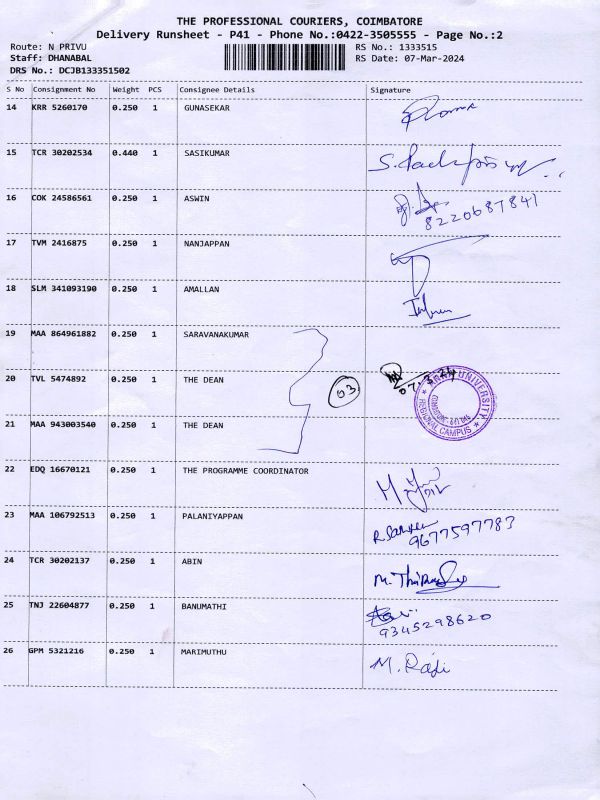 THE PROFESSIONAL COURIERS, COIMBATORE
Delivery Runsheet - P41 - Phone No.:0422-3505555 - Page No.:2
Route: N PRIVU RS No.: 1333515
Staff: DHANABAL RS Date: 07-Mar-2024
DRS No.: DCJB133351502
S No Consignment No Weight PCS Consignee Details Signature
14 KRR 5260170 0.250 1 GUNASEKAR
15 TCR 30202534 0.440 1 SASIKUMAR
16 COK 24586561 0.250 1 ASWIN
8220687841
17 TVM 2416875 0.250 1 NANJAPPAN
18 SLM 341093190 0.250 1 AMALLAN
19 MAA 864961882 0.250 1 SARAVANAKUMAR
20 TVL 5474892 0.250 1 THE DEAN
03
07.3.24
UNIVERSITY
REGIONAL CAMPUS
21 MAA 943003540 0.250 1 THE DEAN
22 EDQ 16670121 0.250 1 THE PROGRAMME COORDINATOR
23 MAA 106792513 0.250 1 PALANIYAPPAN
9677597783
24 TCR 30202137 0.250 1 ABIN
25 TNJ 22604877 0.250 1 BANUMATHI
9345298620
26 GPM 5321216 0.250 1 MARIMUTHU
M. Raji